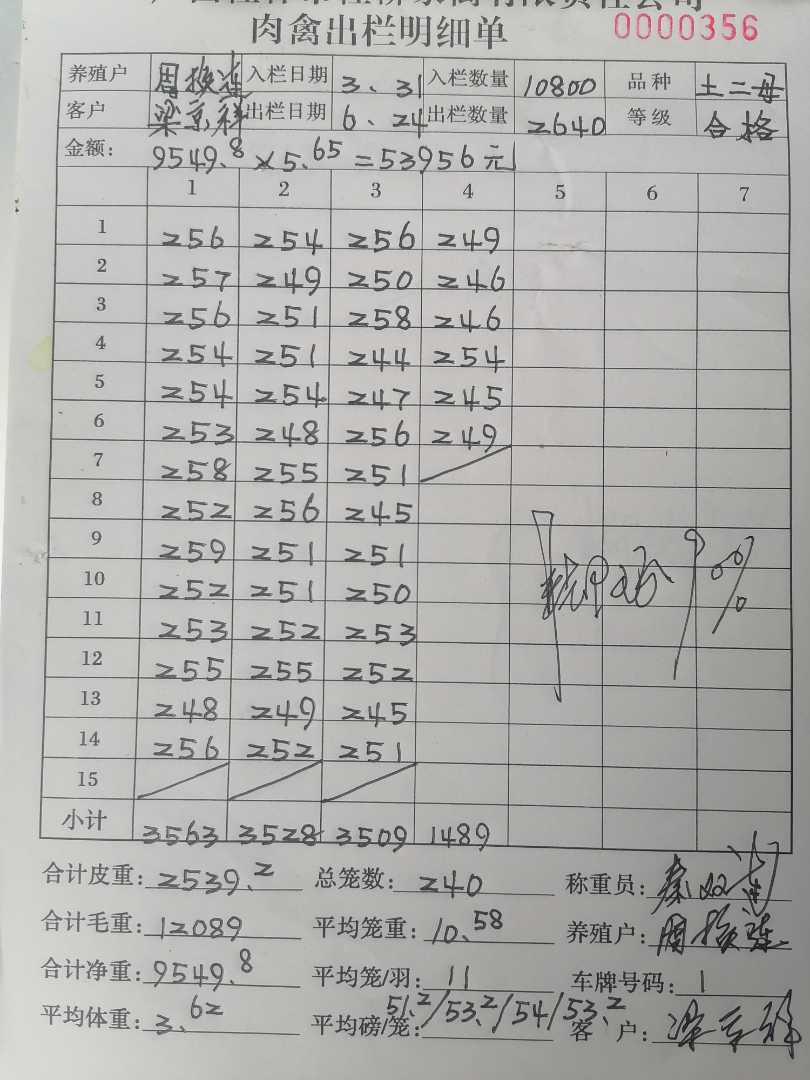 肉禽出栏明细单 0000356
养殖户 周换莲 入栏日期 3.31 入栏数量 10800 品种 土二母
客户 梁京祥 出栏日期 6.24 出栏数量 2640 等级 合格
金额: 9549.8×5.65=53956元
1 2 3 4 5 6 7
1 256 254 256 249
2 257 249 250 246
3 256 251 258 246
4 254 251 244 254
5 254 254 247 245
6 253 248 256 249
7 258 255 251
8 252 256 245
9 259 251 251
10 252 251 250
11 253 252 253
12 255 255 252
13 248 249 245
14 256 252 251
15
小计 3563 3528 3509 1489
合计皮重: 2539.2 总笼数: 240 称重员:
合计毛重: 12089 平均笼重: 10.58 养殖户: 周换莲
合计净重: 9549.8 平均笼/羽: 11 车牌号码: 1
平均体重: 3.62 平均磅/笼: 51.2/53.2/54/53.2 客户: 梁京祥